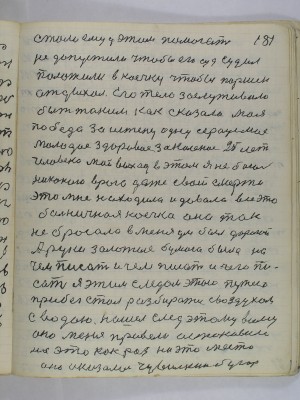 стали ему у этом помогать 181
не допустили чтобы его суд судил
положили в коечку чтобы парень
отдыхал. Его тело заслуживало
быть таким как сказала моя
победа за истину одну
молодое здоровое законное 20 лет
человека мой выход в этом я не боял
никакого врага даже своей смерти
это мне находила и давала вместо
больничная коечка она так
не бросала в меня ум был дорогой
А руки золотые бумага была на
чем писать и чем писать и чего пи-
сать я этим следом этого путно
прибег стал разбирати с воздухом
с водою. нашел след этому всему
оно меня привело остановило
на это как раз на это место
оно оказалось Чувилкин бугор